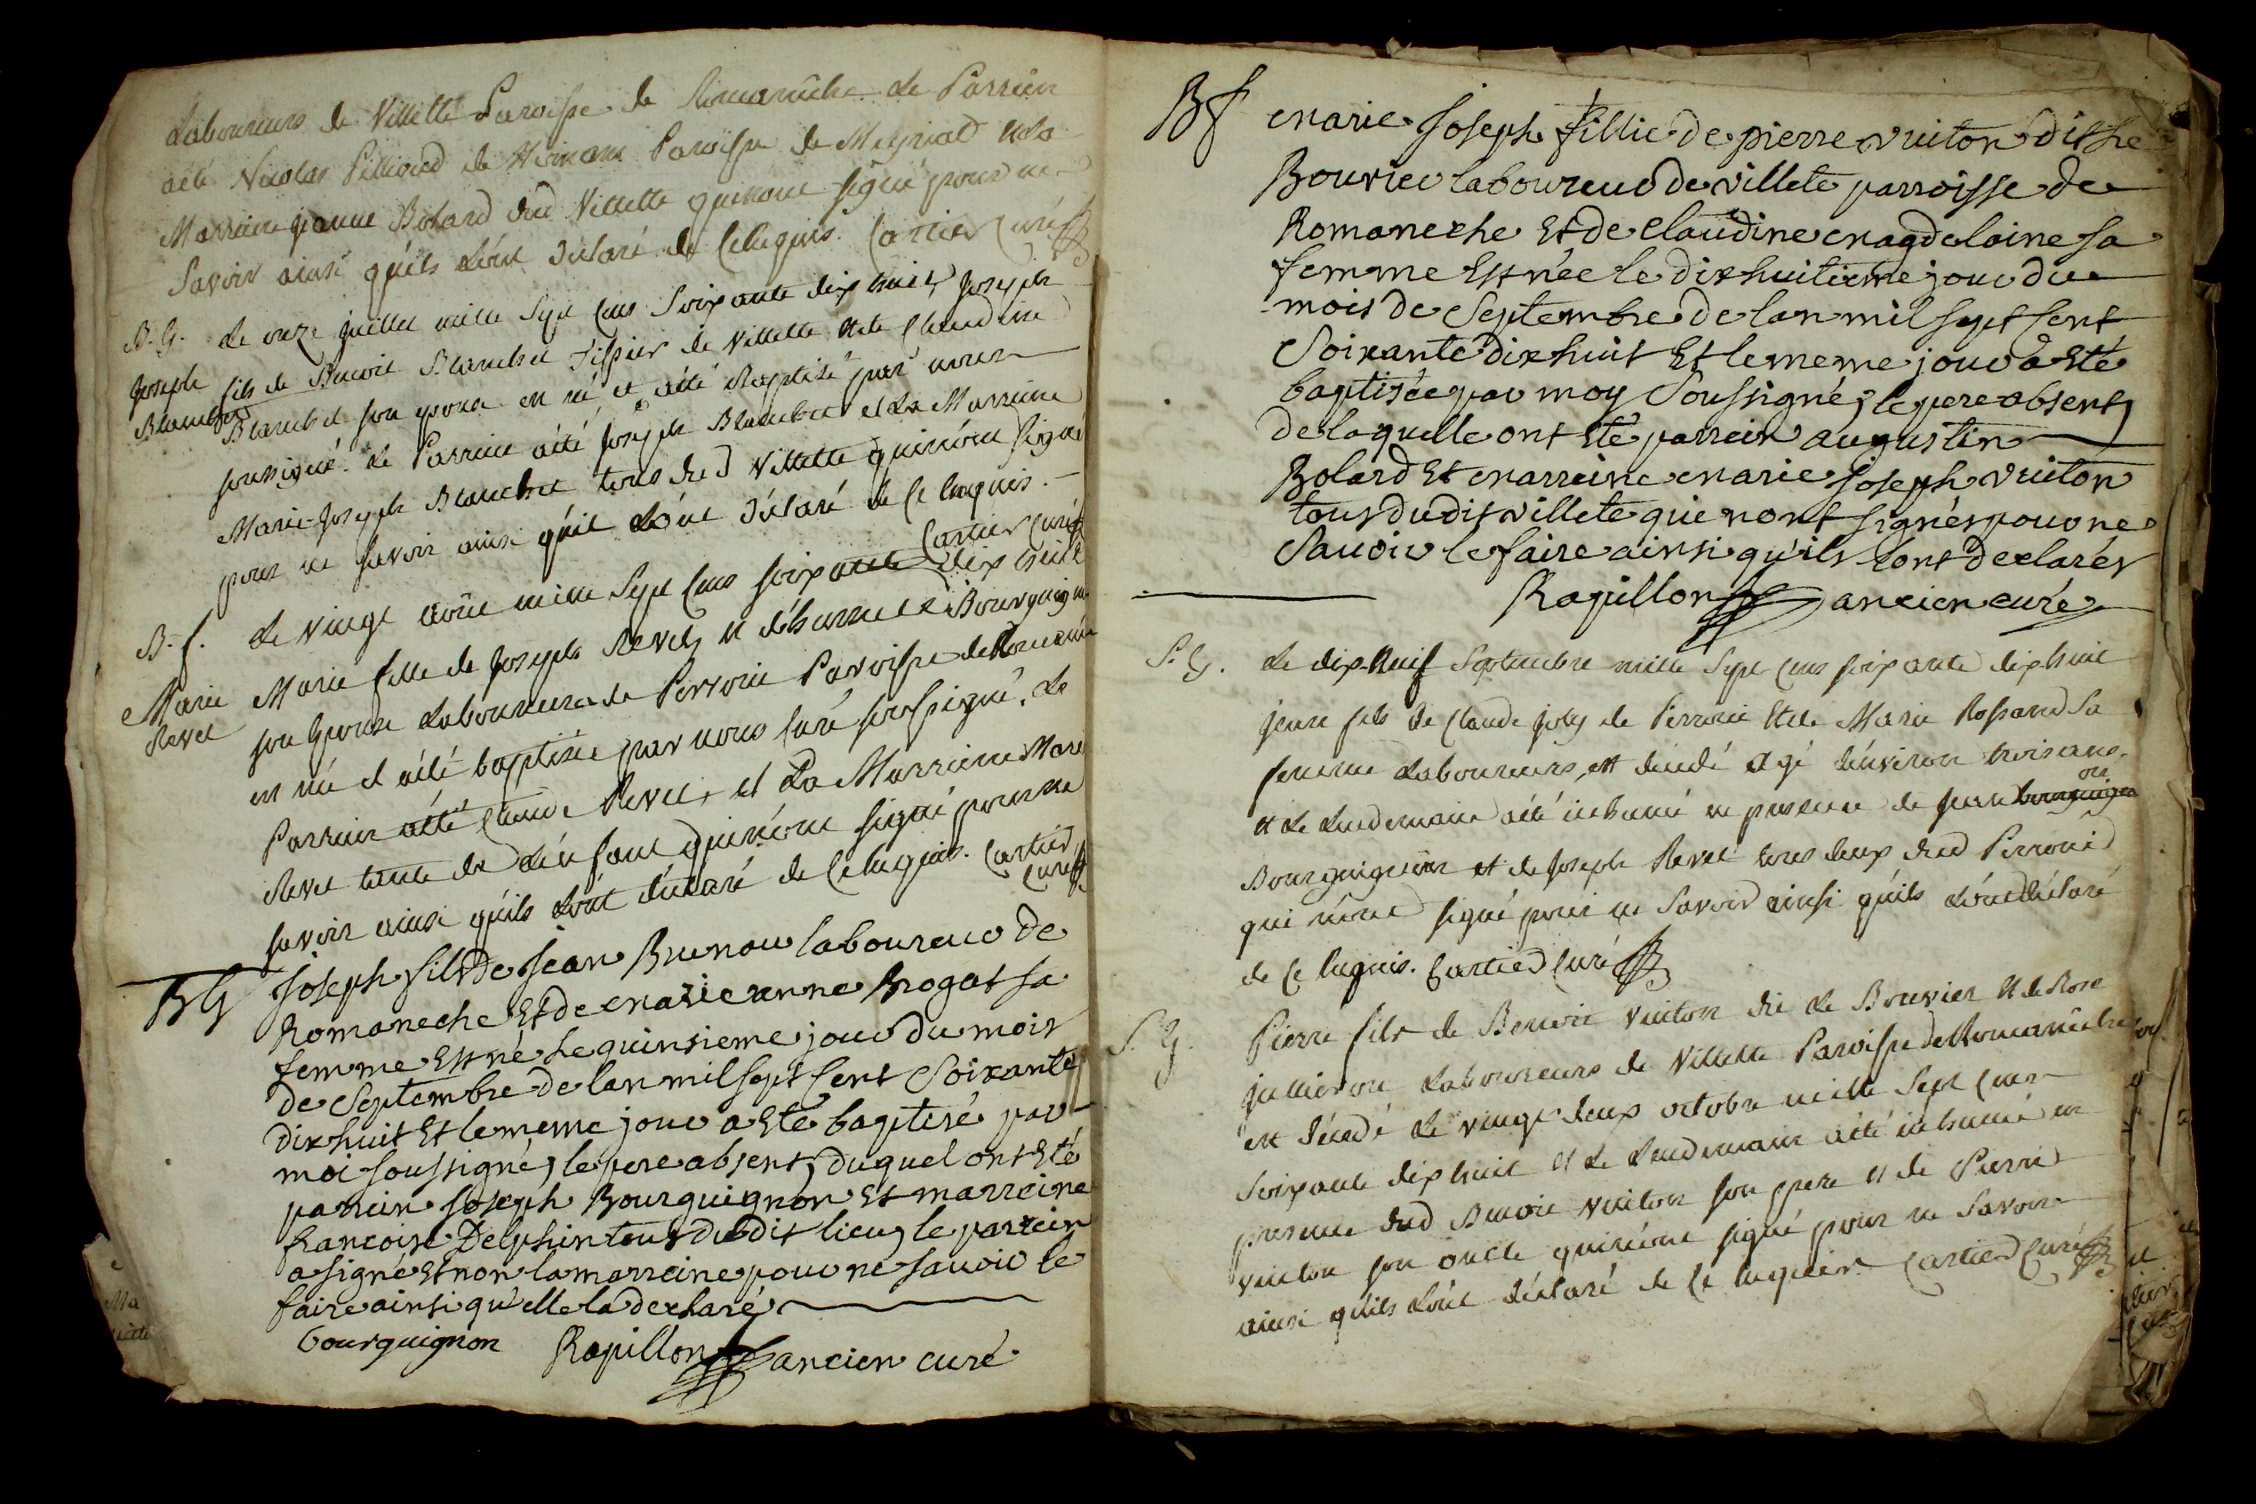 Laboureurs de Villette Paroisse de Romanêche Le Parrein
a été Nicolas de Paroisse de et La
Marreine jeanne Bolard dud Villette qui n'ont signé pour ne
Savoir ainsi qu'ils L'ont déclaré de Ce Enquis. Cartier Curé
B. G. Le onze juillet mille Sept Cens Soixante dix huit, Joseph
Joseph fils de Benoit Blanchet Tissier de Villette et de Claudine
Blanchet Blanchet son épouse est né et a été Baptisé par nous
soussigné. Le Parrein a été Joseph Blanchet et La Marreine
Marie-Joseph Blanchet tous dud Villette qui n'ont signé
pour ne Savoir ainsi qu'il L'ont déclaré de Ce Enquis.
Cartier Curé
B. f. Le vingt août mille Sept Cens soixante dix huit
Marie Marie fille de Joseph Revel, et d'
Revel son épouse Laboureurs de Perronie Paroisse de Romanêche
est née et a été baptisée par nous Curé soussigné. Le
Parrein a été Claude Revel, et La Marreine Marie
Revel tante de L'enfant qui n'ont signé pour ne
savoir ainsi qu'ils L'ont déclaré de Ce Enquis. Cartier
Curé
BG Joseph fils de Jean Brunau laboureur de
Romaneche Et de marie anne Brogat sa
femme Est né Le quinsieme jour du mois
de Septembre de lan mil sept Cent Soixante
dix huit Et le meme jour a Eté baptisé par
moi soussigné, le pere absent, duquel ont Eté
parrein Joseph Bourguignon Et marreine
francoise Delphin tous dudit lieu, le parrein
a signé Et non la marreine pour ne savoir le
faire ainsi qu'elle la declaré
bourguignon Rapillon ancien curé
Bf marie Joseph fillie de pierre vuiton dit Le
Bouvier laboureur de villete parroisse de
Romaneche Et de Claudine magdelaine sa
femme Est née le dixhuitieme jour du
mois de Septembre de lan mil sept Cent
Soixante dixhuit Et le meme jour a Eté
baptisée par moy Soussigné, le pere absent,
de laquelle ont Eté parrein augustin
Bolard Et marreine marie Joseph vuiton
tous dudit villete qui n'ont signés pour ne
Savoir le faire ainsi qu'ils L'ont declarés
Rapillon ancien curé
S. G. Le dix-Neuf Septembre mille Sept Cens soixante dix huit
jean fils de Claude joly de Perronie et de Marie Rossand Sa
femme Laboureurs, est décédé agé d'environ trois ans,
et Le Lendemain a été inhumé en presence de jean
Bourguignon et de Joseph Revel tous deux dud Perronie
qui n'ont signé pour ne Savoir ainsi qu'ils L'ont déclaré
de Ce Enquis. Cartier Curé
S. G. Pierre fils de Benoit Vuiton dit Le Bouvier et de Rose
Laboureurs de Villette Paroisse de Romanêche
est décédé Le vingt deux octobre mille Sept Cens
Soixante dix huit et Le Lendemain a été inhumé en
presence dud Benoit Vuiton son pere et de Pierre
Vuiton son oncle qui n'ont signé pour ne Savoir
ainsi qu'ils L'ont déclaré de Ce Enquis. Cartier Curé